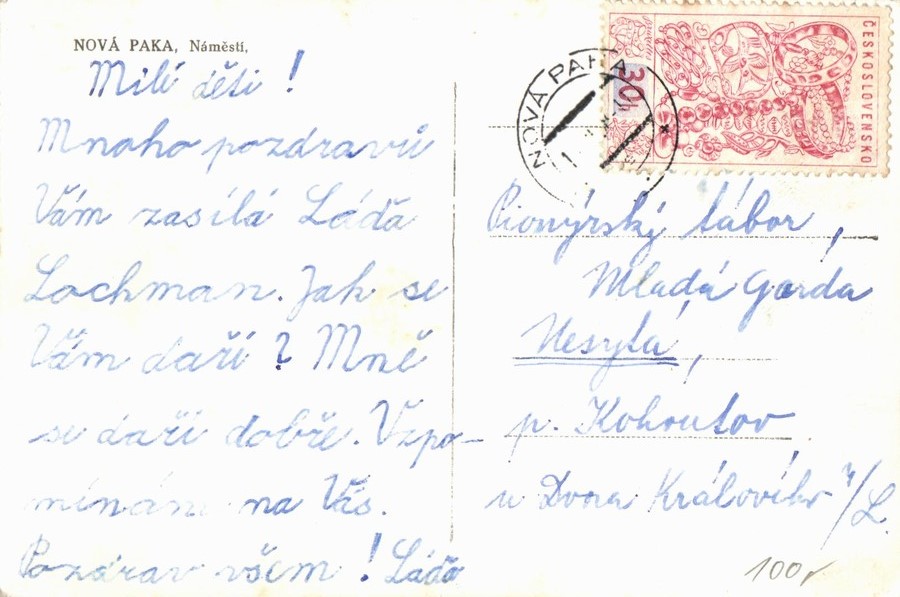 NOVÁ PAKA, Náměstí,
Milí děti!
Mnoho pozdravů
Vám zasílá Láďa
Lochman. Jak se
Vám daří? Mně
se daří dobře. Vzpo-
mínám na Vás.
Pozdrav všem! Láďa
NOVÁ PAKA
30h
ČESKOSLOVENSKO
Pionýrský tábor,
Mladá Garda
Nesytá,
p. Kohoutov
u Dvora Králového n/L.
100,